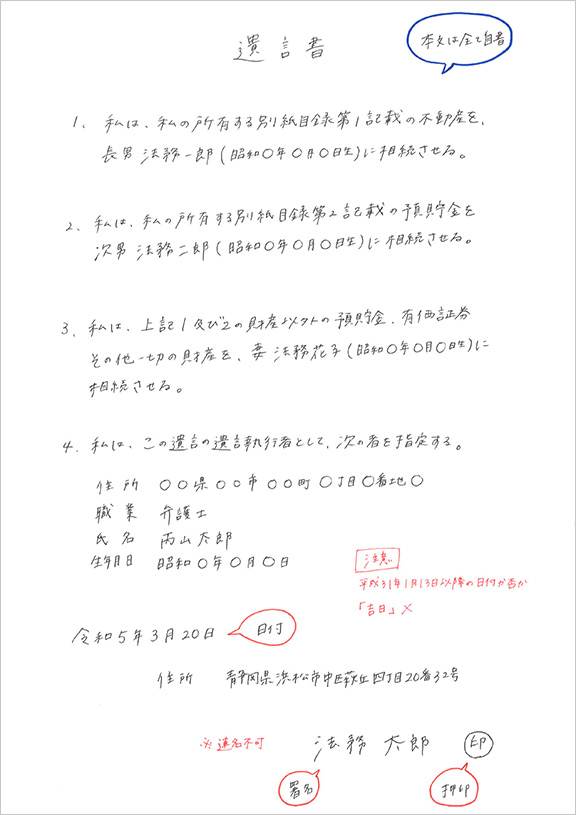 遺言書
本文は全て自書
1. 私は、私の所有する別紙目録第1記載の不動産を、
長男 法務一郎(昭和〇年〇月〇日生)に相続させる。
2. 私は、私の所有する別紙目録第2記載の預貯金を
次男 法務二郎(昭和〇年〇月〇日生)に相続させる。
3. 私は、上記1及び2の財産以外の預貯金、有価証券
その他一切の財産を、妻 法務花子(昭和〇年〇月〇日生)に
相続させる。
4. 私は、この遺言の遺言執行者として、次の者を指定する。
住所 〇〇県〇〇市〇〇町〇丁目〇番地〇
職業 弁護士
氏名 丙山太郎
生年月日 昭和〇年〇月〇日
注意
平成31年1月13日以降の日付か否か
「吉日」×
令和5年3月20日
日付
住所 静岡県浜松市中区萩丘四丁目20番32号
※連名不可
法務 太郎 印
署名
押印